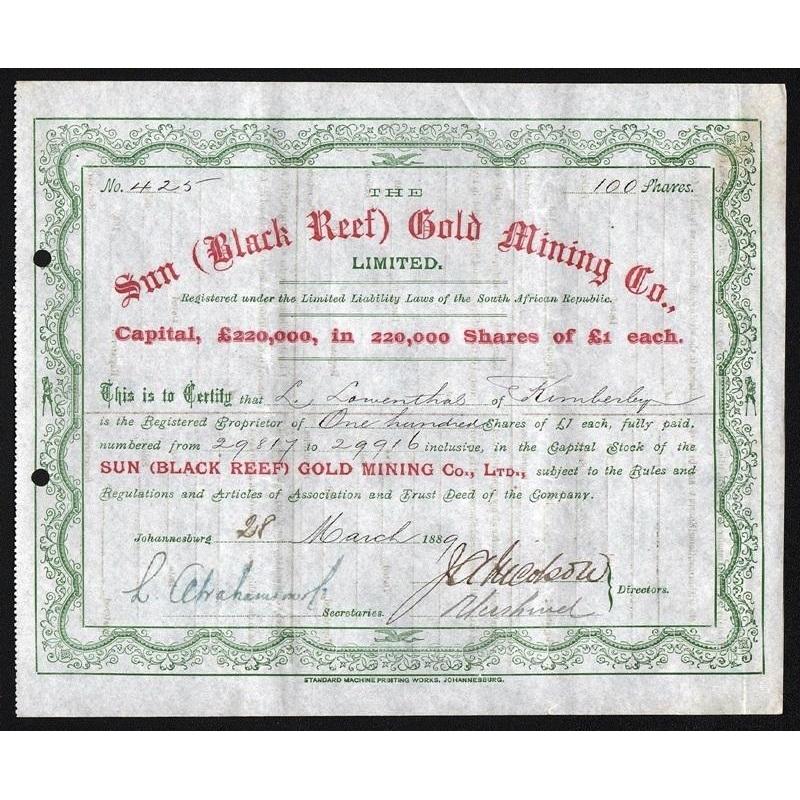 No. 425
100 Shares.
THE
Sun (Black Reef) Gold Mining Co.,
LIMITED.
Registered under the Limited Liability Laws of the South African Republic.
Capital, £220,000, in 220,000 Shares of £1 each.
This is to Certify that L. Lowenthal of Kimberley
is the Registered Proprietor of One hundred Shares of £1 each, fully paid,
numbered from 29817 to 29916 inclusive, in the Capital Stock of the
SUN (BLACK REEF) GOLD MINING Co., LTD., subject to the Rules and
Regulations and Articles of Association and Trust Deed of the Company.
Johannesburg 28 March 1889
L. Abrahamson
Secretaries.
Directors.
STANDARD MACHINE PRINTING WORKS, JOHANNESBURG.